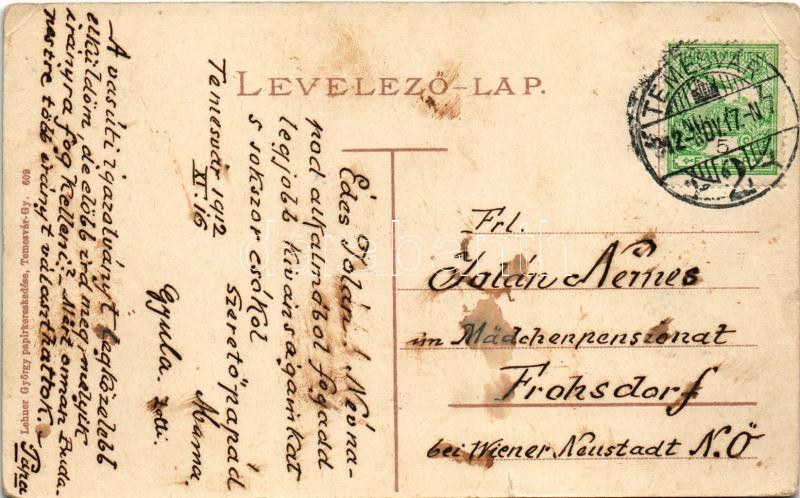 LEVELEZŐ-LAP.
TEMESVÁR
912 NOV. 17
5
2
Frl.
Jolán Nemes
im Mädchenpensionat
Frohsdorf
bei Wiener Neustadt N.Ö
Édes Jolán! Névna-
pod alkalmából fogadd
legjobb kívánságainkat
s sokszor csókol
szerető papád
Mama
Temesvár 1912
XI. 16
Gyula. Zolti.
A vasúti igazolványt legközelebb
elküldöm, de előbb írd meg melyik
irányra fog kelleni? Mert onnan Buda-
pestre több irányt választhattok.
Papa
Lehner György papirkereskedése, Temesvár-Gy. 609
darabanth